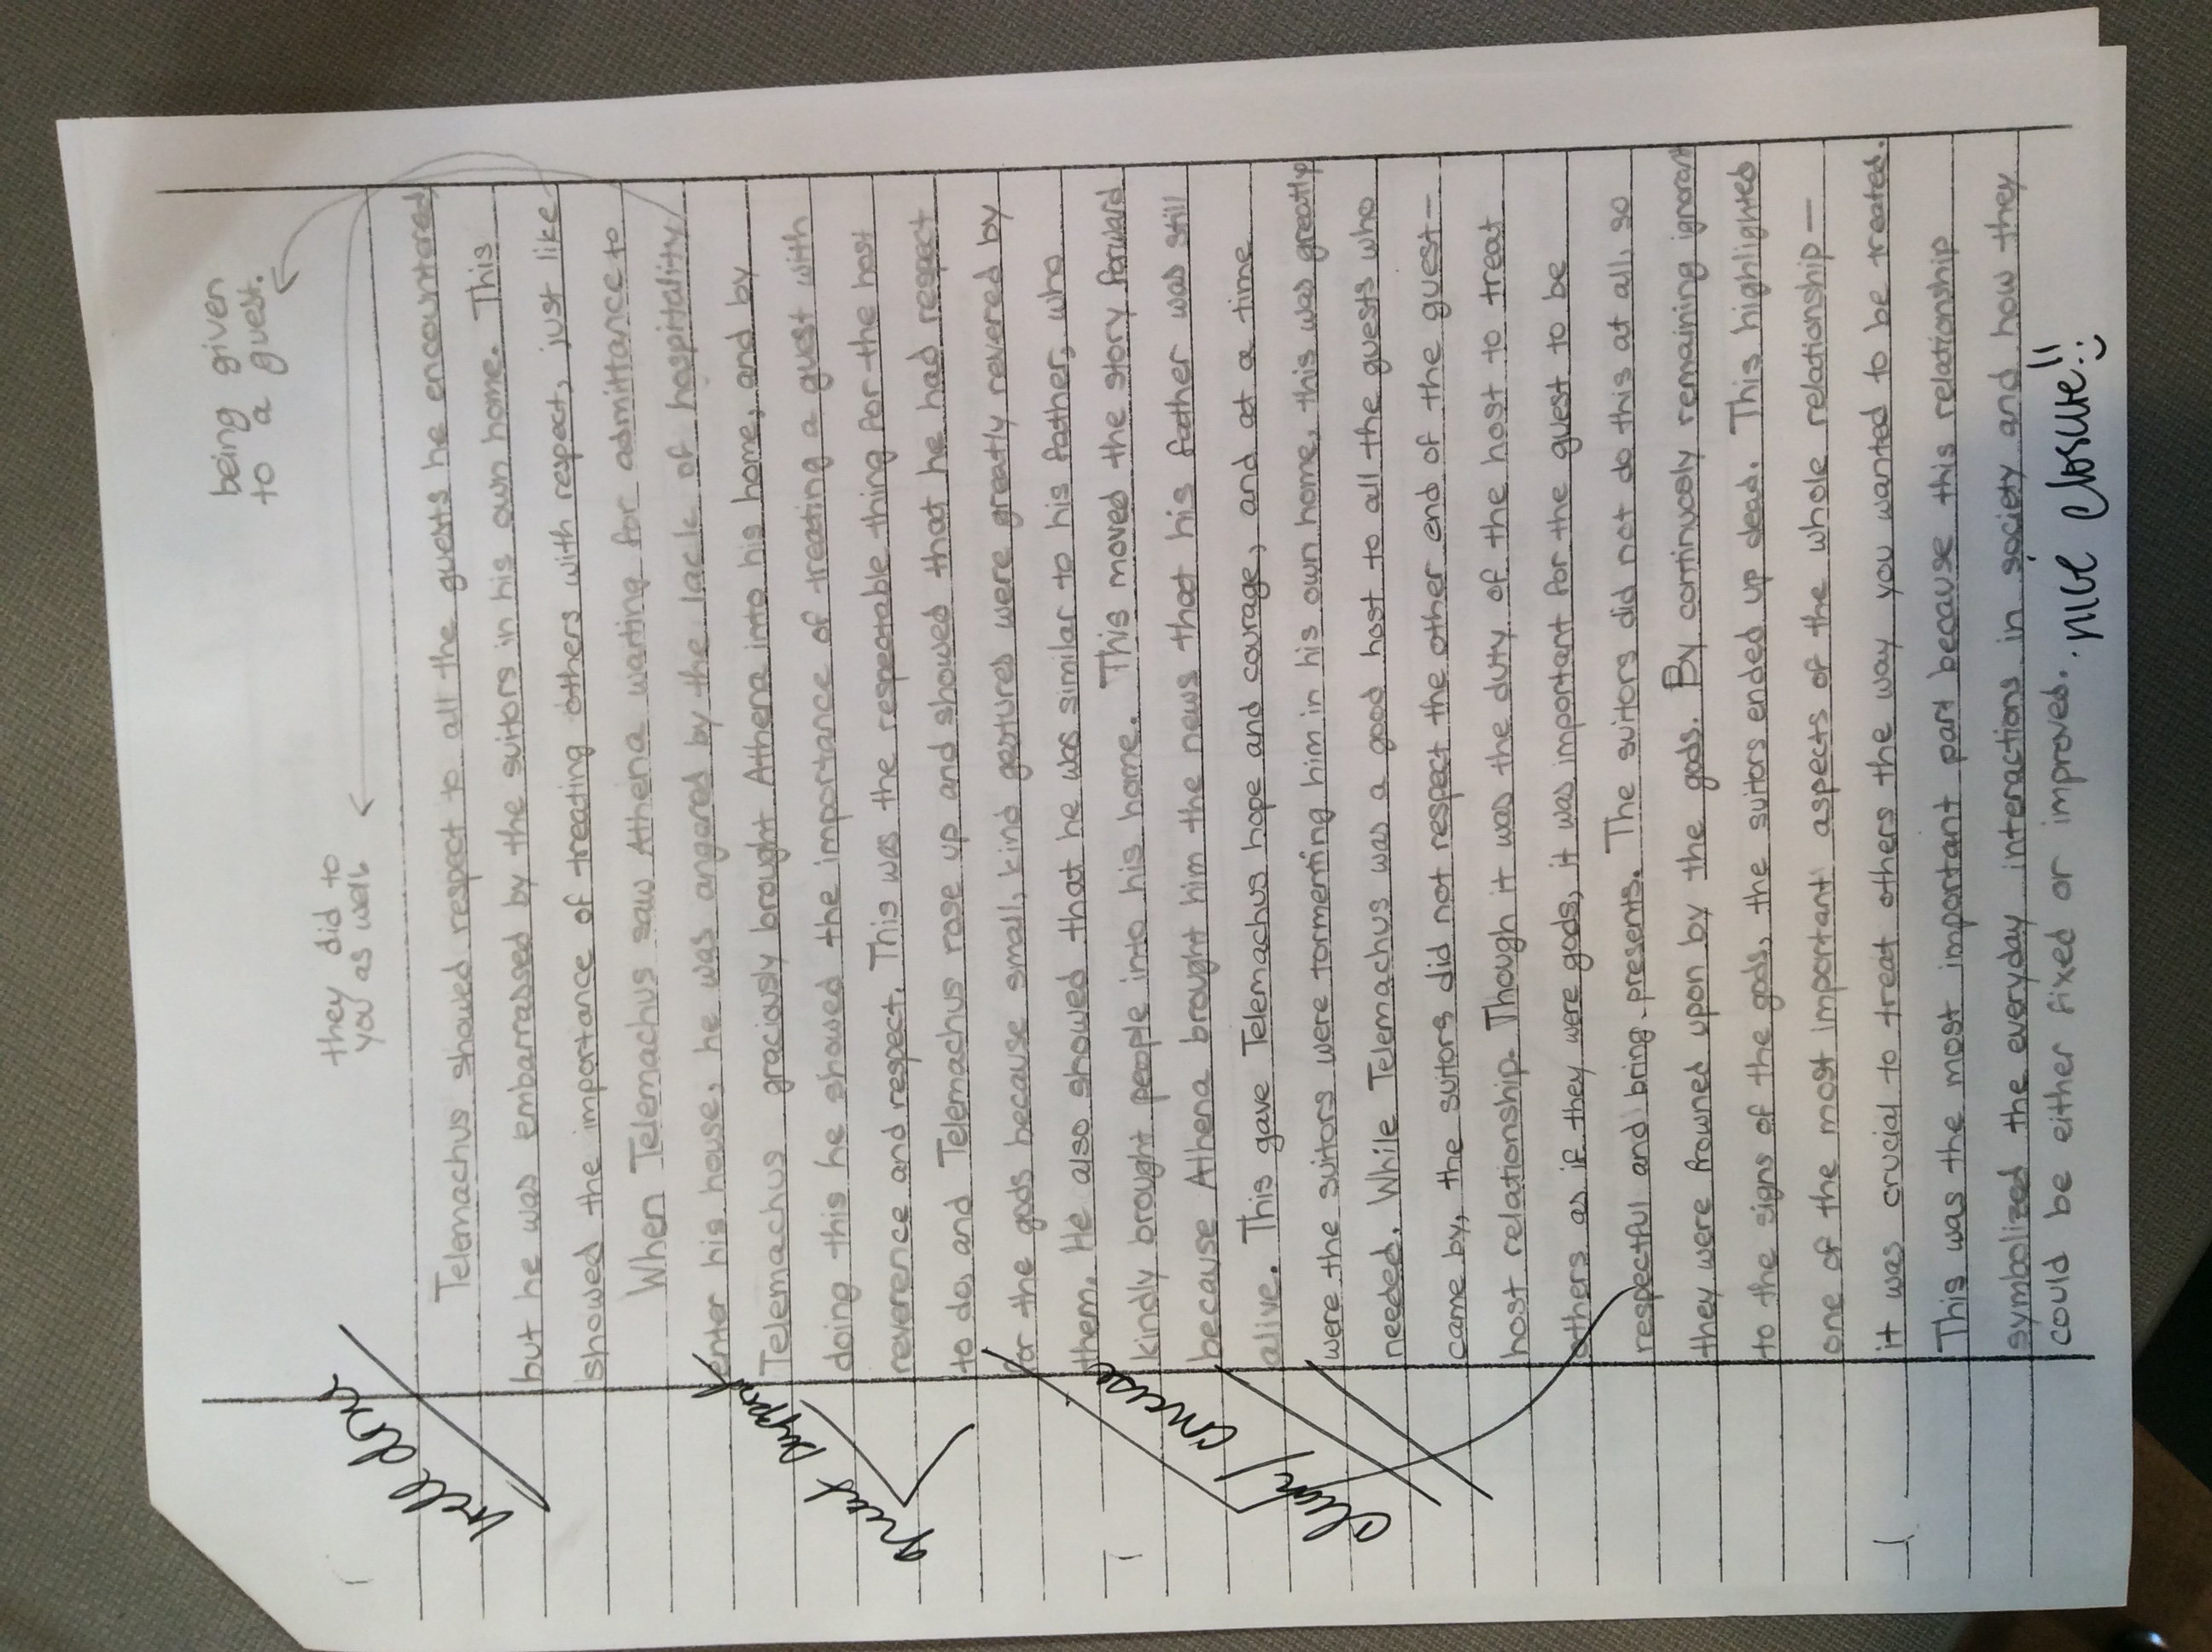 being given
to a guest.
they did to
you as well.
well done
Telemachus showed respect to all the guests he encountered,
but he was embarrassed by the suitors in his own home. This
showed the importance of treating others with respect, just like
When Telemachus saw Athena waiting for admittance to
enter his house, he was angered by the lack of hospitality
Telemachus graciously brought Athena into his home, and by
doing this he showed the importance of treating a guest with
great support
reverence and respect. This was the respectable thing for the host
to do, and Telemachus rose up and showed that he had respect
for the gods because small, kind gestures were greatly revered by
them. He also showed that he was similar to his father, who
kindly brought people into his home. This moved the story forward
because Athena brought him the news that his father was still
clear/concise
alive. This gave Telemachus hope and courage, and at a time
were the suitors were tormenting him in his own home, this was greatly
needed. While Telemachus was a good host to all the guests who
came by, the suitors did not respect the other end of the guest-
host relationship. Though it was the duty of the host to treat
others as if they were gods, it was important for the guest to be
respectful and bring presents. The suitors did not do this at all, so
they were frowned upon by the gods. By continuosly remaining ignorant
to the signs of the gods, the suitors ended up dead. This highlighted
one of the most important aspects of the whole relationship—
it was crucial to treat others the way you wanted to be treated.
This was the most important part because this relationship
symbolized the everyday interactions in society and how they
could be either fixed or improved.
nice closure!!